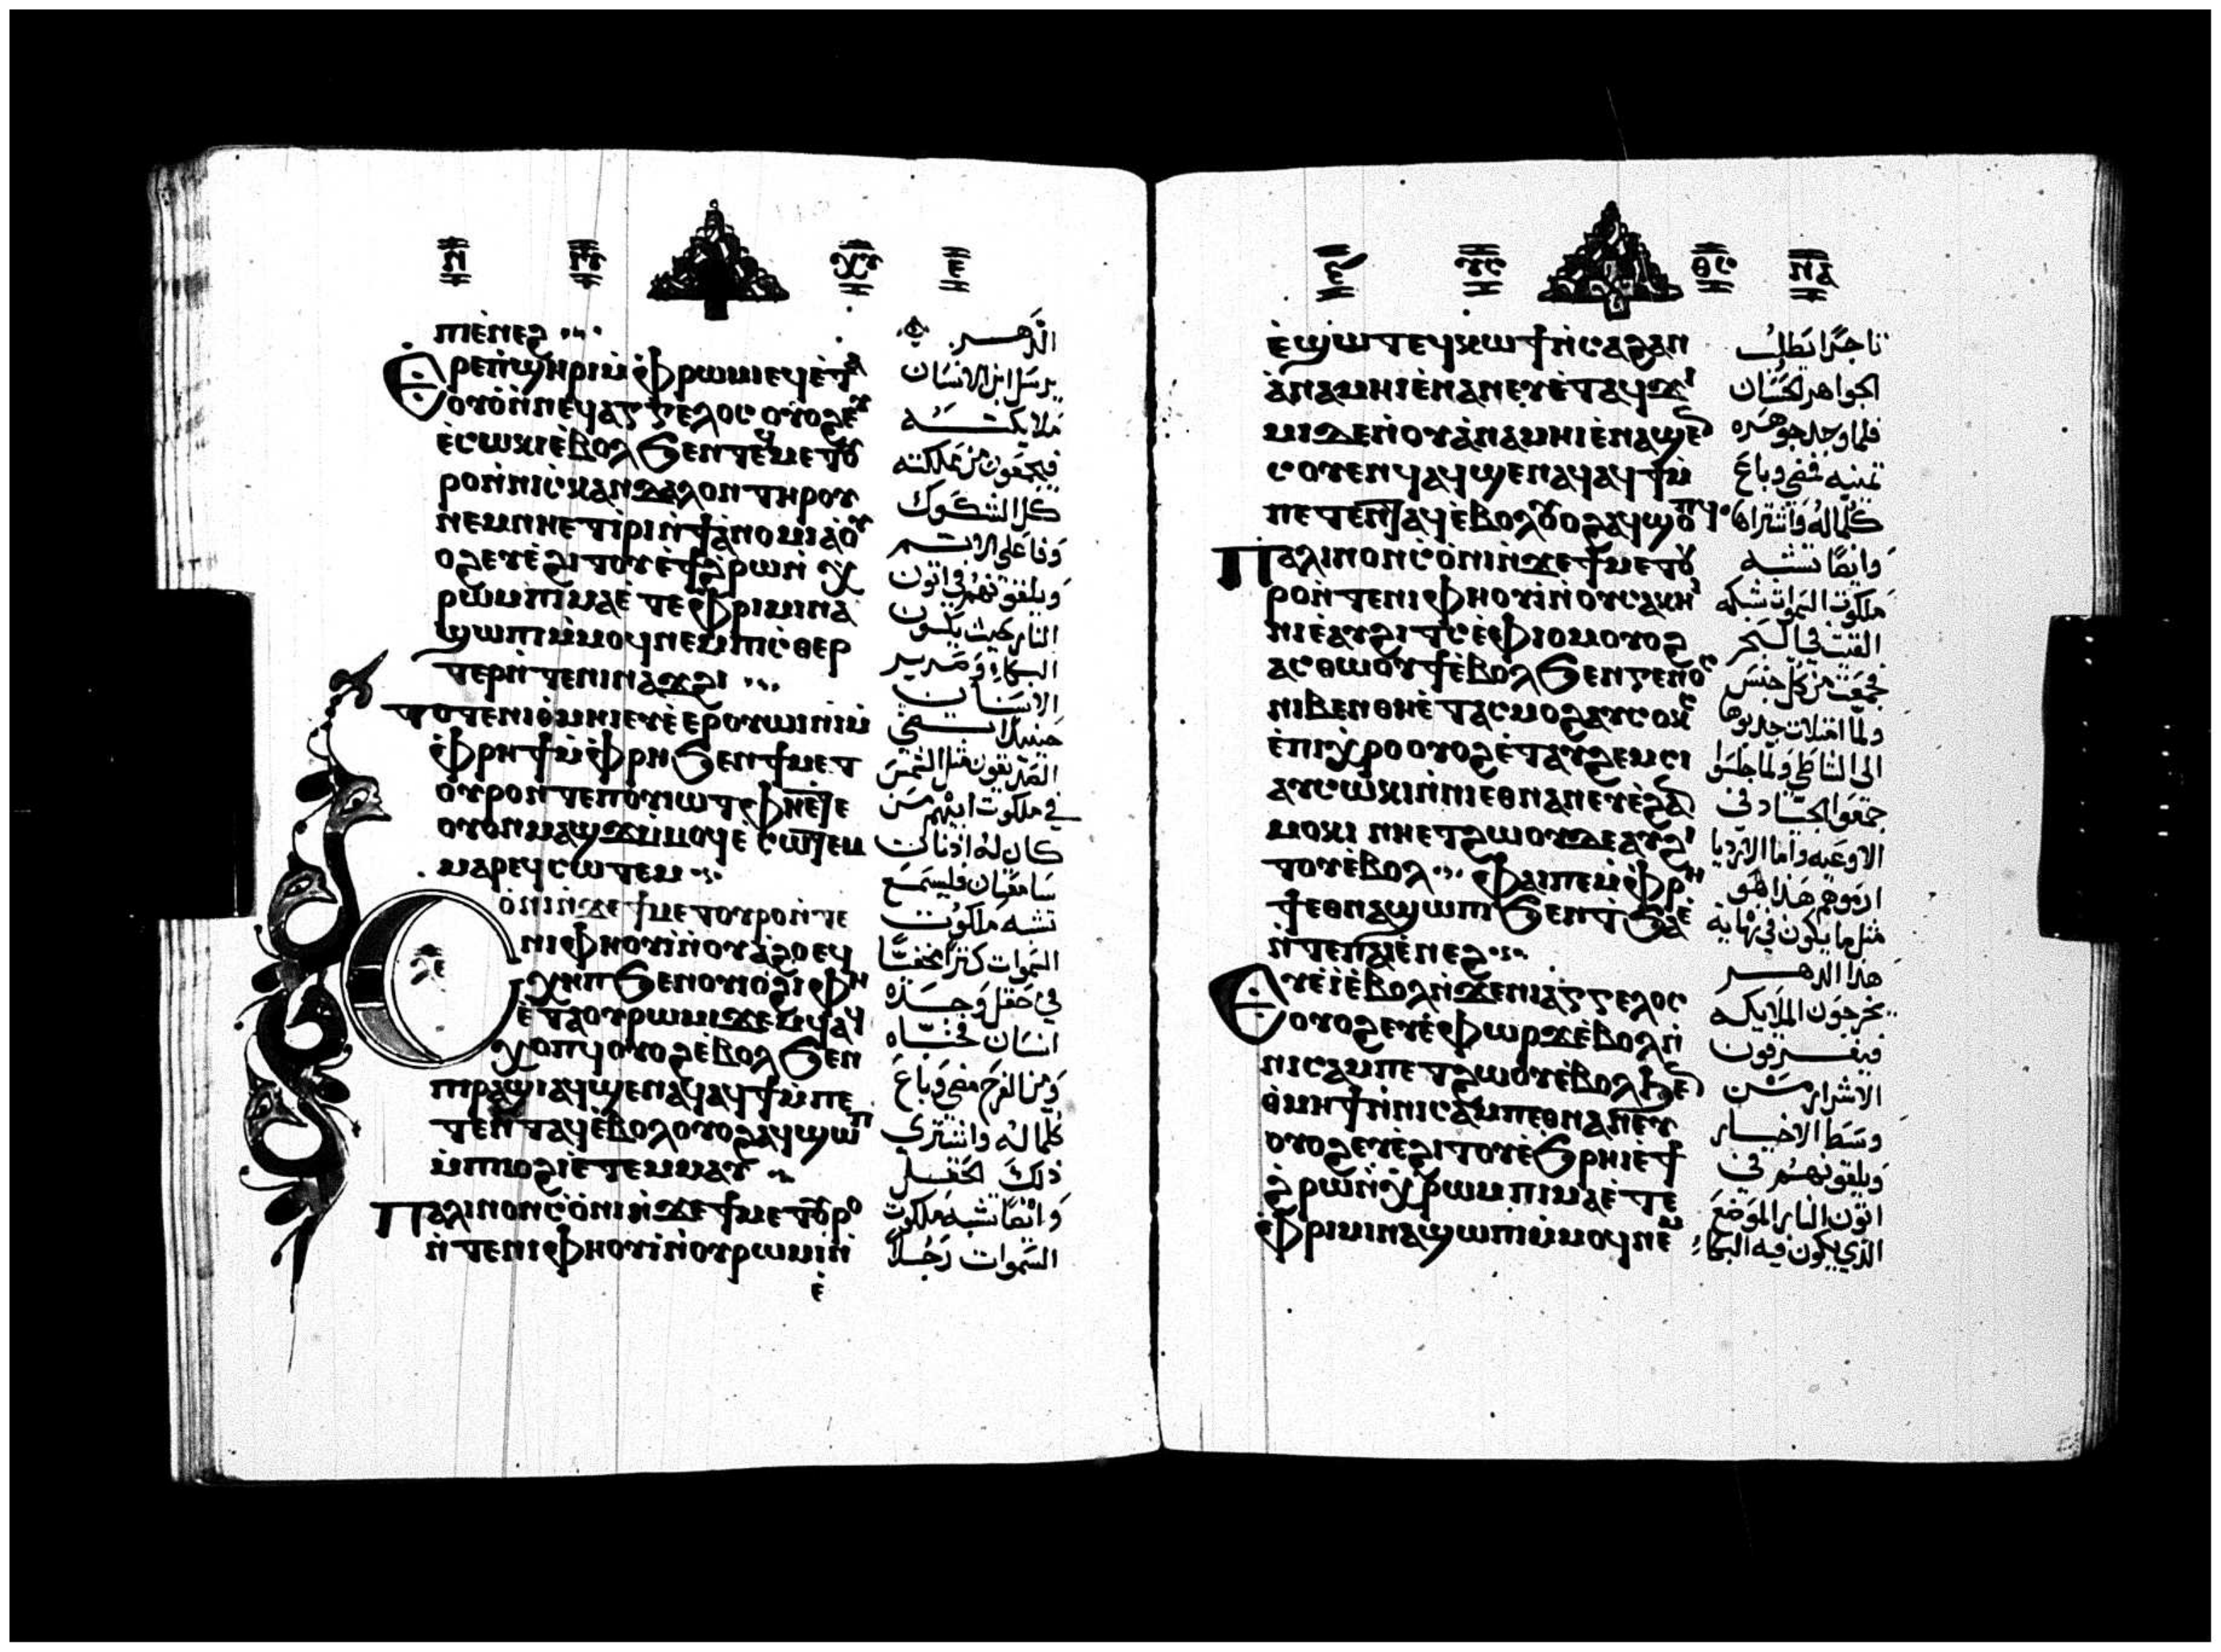 ⲡⲓⲉ̀ⲛⲉϩ
Ⲉⲣⲉⲡ̀ϣⲏⲣⲓⲙ̀ⲫ̀ⲣⲱⲙⲓⲉϥⲉ̀ⲧⲁ
ⲟⲩⲟ̀ⲛ̀ⲛⲉϥⲁⲅⲅⲉⲗⲟⲥⲟⲩⲟϩⲉⲩ
ⲉ̀ⲥⲱⲕⲓⲉ̀ⲃⲟⲗϧⲉⲛⲧⲉϥⲙⲉⲧⲟⲩ
ⲣⲟⲛ̀ⲛⲓⲥⲕⲁⲛⲇⲁⲗⲟⲛⲧⲏⲣⲟⲩ
ⲛⲉⲙⲛⲏⲉⲧⲓⲣⲓⲛ̀ϯⲁ̀ⲛⲟⲙⲓⲁ̀ⲟⲩ
ⲟϩⲉⲩⲉ̀ϩⲓⲧⲟⲩⲉ̀ϯϩ̀ⲣⲱⲛ̀ⲭ̀
ⲣⲱⲙⲡⲓⲙⲁⲉ̀ⲧⲉⲫ̀ⲣⲓⲙⲓⲛⲁ
ϣⲱⲡⲓⲙ̀ⲙⲟϥⲛⲉⲙⲡⲓⲥ̀ⲑⲉⲣ
ⲧⲉⲣⲛ̀ⲧⲉⲛⲓⲛⲁϫϩⲓ
ⲧⲟⲧⲉⲛⲓⲑ̀ⲙⲏⲓⲉⲩⲉ̀ⲉⲣⲟⲩⲱⲓⲛⲓⲙ̀
ⲫ̀ⲣⲏϯⲙ̀ⲫ̀ⲣⲏϧⲉⲛϯⲙⲉⲧ
ⲟⲩⲣⲟⲛ̀ⲧⲉⲡⲟⲩⲓⲱⲧⲫⲏⲉⲧⲉ
ⲟⲩⲟⲛⲙⲁϣϫⲙ̀ⲙⲟϥⲉ̀ⲥⲱⲧⲉⲙ
ⲙⲁⲣⲉϥⲥⲱⲧⲉⲙ
Ⲥⲟ̀ⲛⲓⲛ̀ϫⲉϯⲙⲉⲧⲟⲩⲣⲟⲛ̀ⲧⲉ
ⲛⲓⲫⲏⲟⲩⲓ̀ⲛ̀ⲟⲩⲁ̀ϩⲟⲉϥ
ⲭⲏⲡϧⲉⲛⲟⲩⲓⲟ̀ϩⲓⲫⲏ
ⲉ̀ⲧⲁⲟⲩⲣⲱⲙⲓϫⲉⲙϥⲁϥ
ⲭⲟⲡϥⲟⲩⲟϩⲉ̀ⲃⲟⲗϧⲉⲛ
ⲡⲓⲣⲁϣⲓⲁϥϣⲉⲛⲁϥⲁϥϯⲙ̀ⲡⲉ
ⲧⲉⲛⲧⲁϥⲉ̀ⲃⲟⲗⲟⲩⲟϩⲁϥϣⲱⲡ
ⲙ̀ⲡⲓⲟϩⲓⲉ̀ⲧⲉⲙⲙⲁⲩ
Ⲡⲁⲗⲓⲛⲟⲛⲥ̀ⲟ̀ⲛⲓⲛ̀ϫⲉϯⲙⲉⲧⲟⲩⲣⲟ
ⲛ̀ⲧⲉⲛⲓⲫⲏⲟⲩⲓ̀ⲛ̀ⲟⲩⲣⲱⲙⲓⲛ̀
ⲉ̀
الدهر
يرسل ابن الانسان
ملايكته
فيجمعون من مملكته
كل الشكوك
وفاعلي الاثم
ويلقونهم في اتون
النار حيث يكون
البكاء وصرير
الاسنان
حينيذ
الصديقون مثل الشمس
في ملكوت ابيهم من
كان له اذنان
سامعتان فليسمع
تشبه ملكوت
السموات كنزا مخفيا
في حقل وجده
انسان فخباه
ومن الفرح مضى وباع
كلما له واشترى
ذلك الحقل
وايضا تشبه ملكوت
السموات رجلا
ⲩⲥ ⲑⲥ ⲛⲁ
ⲉ̀ϣⲱⲧⲉϥⲕⲱϯⲛ̀ⲥⲁϩⲁⲛ
ⲁ̀ⲛⲁⲙⲏⲓⲉ̀ⲛⲁⲛⲉⲩⲉ̀ⲧⲁϥϫⲓ
ⲙⲓⲇⲉⲛ̀ⲟⲩⲁ̀ⲛⲁⲙⲏⲓⲉ̀ⲛⲁϣⲉ
ⲥⲟⲩⲉⲛϥⲁϥϣⲉⲛⲁϥⲁϥϯⲙ̀
ⲡⲉⲧⲉⲛⲧⲁϥⲉ̀ⲃⲟⲗⲟⲩⲟϩⲁϥϣⲟⲡϥ
Ⲡⲁⲗⲓⲛⲟⲛⲥ̀ⲟ̀ⲛⲓⲛ̀ϫⲉϯⲙⲉⲧⲟⲩ
ⲣⲟⲛ̀ⲧⲉⲛⲓⲫⲏⲟⲩⲓ̀ⲛ̀ⲟⲩⲥⲁⲕⲏ
ⲛⲓⲉ̀ⲁⲩϩⲓⲧⲥⲉ̀ⲫ̀ⲓⲟⲙⲟⲩⲟϩ
ⲁⲥⲑⲱⲟⲩϯⲉ̀ⲃⲟⲗϧⲉⲛⲅⲉⲛⲟⲥ
ⲛⲓⲃⲉⲛⲑⲏⲉ̀ⲧⲁⲥⲙⲟϩⲁⲩⲥⲟⲕⲥ
ⲉ̀ⲡⲓⲭ̀ⲣⲟⲟⲩⲟϩⲉ̀ⲧⲁⲩϩⲉⲙⲥⲓ
ⲁⲩⲥⲱⲕⲓⲛ̀ⲛⲓⲉⲑⲛⲁⲛⲉⲩⲉ̀ϩⲁⲛ
ⲙⲟⲕⲓ ⲛⲏⲉⲧϩⲱⲟⲩⲇⲉⲁⲩϩⲓ
ⲧⲟⲩⲉ̀ⲃⲟⲗ ⲫⲁⲓⲡⲉⲙ̀ⲫ̀ⲣⲏ
ϯⲉⲑⲛⲁϣⲱⲡⲓϧⲉⲛⲧ̀ϧⲁⲉ̀
ⲛ̀ⲧⲉⲡⲁⲓⲉ̀ⲛⲉϩ
Ⲉⲩⲉ̀ⲓ̀ⲉ̀ⲃⲟⲗⲛ̀ϫⲉⲛⲓⲁⲅⲅⲉⲗⲟⲥ
ⲟⲩⲟϩⲉⲩⲉ̀ⲫⲱⲣϫⲉ̀ⲃⲟⲗⲛ̀
ⲛⲓⲥⲁⲙⲡⲉⲧϩⲱⲟⲩⲉ̀ⲃⲟⲗϧⲉⲛ
ⲑ̀ⲙⲏϯⲛ̀ⲛⲓⲥⲁⲙⲡⲉⲑⲛⲁⲛⲉⲩ
ⲟⲩⲟϩⲉⲩⲉ̀ϩⲓⲧⲟⲩⲉ̀ϧ̀ⲣⲏⲓⲉ̀ϯ
ϩ̀ⲣⲱⲛ̀ⲭ̀ⲣⲱⲙⲡⲓⲙⲁⲉ̀ⲧⲉ
ⲫ̀ⲣⲓⲙⲓⲛⲁϣⲱⲡⲓⲙ̀ⲙⲟϥⲛⲉⲙ
تاجرا يطلب
الجواهر الحسان
فلما وجد جوهره
ثمينه فمضى وباع
كلما له واشتراها
وايضا تشبه
ملكوت السموات شبكه
القيت في البحر
فجمعت من كل جنس
ولما امتلات جذبوها
الى الشاطي ولما جلسوا
جمعوا الجياد في
الاوعيه واما الارديا
ارموهم هذا هو
مثل ما يكون في نهاية
هذا الدهر
يخرجون الملايكه
فيفرقون
الاشرار من
وسط الاخيار
ويلقونهم في
اتون النار الموضع
الذي يكون فيه البكاء